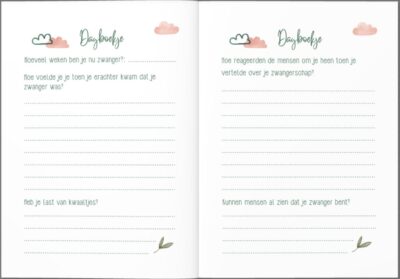 Dagboekje
Hoeveel weken ben je nu zwanger?:
Hoe voelde je je toen je erachter kwam dat je
zwanger was?
Heb je last van kwaaltjes?
Dagboekje
Hoe reageerden de mensen om je heen toen je
vertelde over je zwangerschap?
Kunnen mensen al zien dat je zwanger bent?